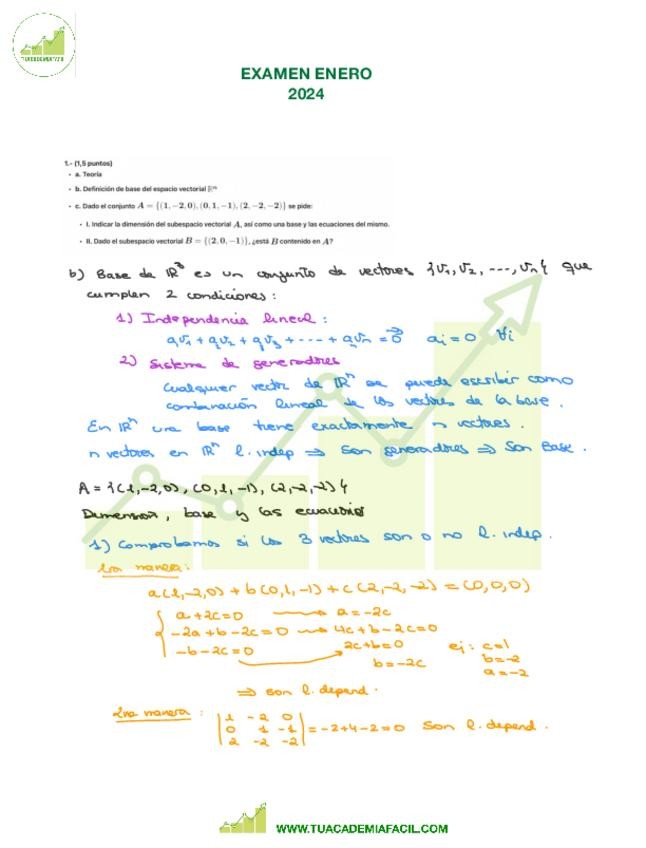 TUACADEMIAFACIL
EXAMEN ENERO
2024
1.- (1,5 puntos)
• a. Teoría
• b. Definición de base del espacio vectorial ℝⁿ
• c. Dado el conjunto A = {(1, −2, 0), (0, 1, −1), (2, −2, −2)} se pide:
• I. Indicar la dimensión del subespacio vectorial A, así como una base y las ecuaciones del mismo.
• II. Dado el subespacio vectorial B = {(2, 0, −1)}, ¿está B contenido en A?
b) Base de ℝⁿ es un conjunto de vectores {v₁, v₂, ..., vₙ} que
cumplen 2 condiciones:
1) Independencia lineal:
a₁v₁ + a₂v₂ + a₃v₃ + ... + aₙvₙ = 0⃗ aᵢ = 0 ∀i
2) Sistema de generadores
Cualquier vector de ℝⁿ se puede escribir como
combinación lineal de los vectores de la base.
En ℝⁿ una base tiene exactamente n vectores.
n vectores en ℝⁿ l. indep ⇒ son generadores ⇒ son Base.
A = {(1,-2,0), (0,1,-1), (2,-2,-2)}
Dimension, base y las ecuaciones
1) Comprobamos si los 3 vectores son o no l. indep.
1ra manera:
a(1,-2,0) + b(0,1,-1) + c(2,-2,-2) = (0,0,0)
a + 2c = 0 → a = -2c
-2a + b - 2c = 0 → 4c + b - 2c = 0
-b - 2c = 0 2c + b = 0 ej: c = 1
b = -2c b = -2
a = -2
⇒ son l. depend.
2na manera: | 1 -2 0 |
| 0 1 -1 | = -2+4-2 = 0 Son l. depend.
| 2 -2 -2 |
WWW.TUACADEMIAFACIL.COM